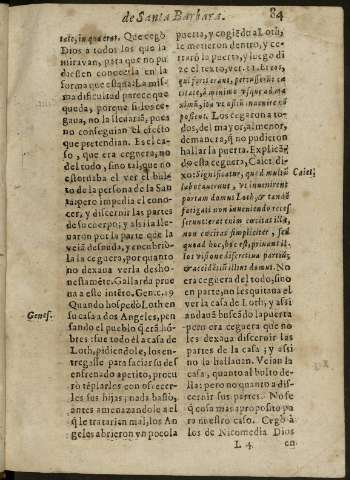 de Santa Barbara. 84
tate, in qua erat. Que cegò
Dios a todos los que la
miravan, para que no pu
diessen conocerla en la
forma que estaua. La mis-
ma dificultad parece que
queda, porque si los ce-
gaua, no la lleuariā, pues
no conseguian el efecto
que pretendian. Es el ca-
so, que era ceguera, no
del todo, sino tal, que no
estoruaba el ver el bulto
de la persona de la San
ta: pero impedia el cono-
cer, y discernir las partes
de su cuerpo; y assi la lle-
uaron por la parte que la
veiā desnuda, y encubriò-
la la ceguera, por quanto
no dexaua verla desho-
nestamēte. Gallarda prue
ua a este intēto. Gene. 19
Quando hospedò Loth en
su casa a dos Angeles, pen
sando el pueblo q̄ erā hō-
bres: fue todo èl a casa de
Loth, pidiendole, los en-
tregasse para saciar su des
enfrenado apetito, procu
rò tēplarlos con ofrecer-
les sus hijas; nada bastò,
antes amenazandole a el
q̄ le trataríen mal, los An
geles abrieron vn poco la
Genes.
puerta, y cogiēdo a Loth,
le metieron dentro, y ce-
rrarō la puerta, y luego di
ze el texto, ver. 11. Et eos,
qui foris erant, percusserunt cæ
citate, à minimo vsque ad ma
ximū, ita vt ostiū inuenire nō
possent. Los cegaron a to-
dos, del mayor, al menor,
de manera, q̄ no pudieron
hallar la puerta. Explicā-
do esta ceguera, Caiet. di-
xo: Significatur, quod multū
laborauerunt, vt inuenirent
portam domus Loth, & tandē
fatigati non inueniendo reces
serunt: erat enim cæcitas illa,
non cæcitas simpliciter, sed
quoad hoc, hoc est, priuans il-
los visione discretiua partiū,
& accidētiū illius domus. No
era ceguera del todo, sino
en parte, no les quitaua el
ver la casa de Loth, y assi
andauā buscādo la puerta
pero era ceguera que no
les dexaua discernir las
partes de la casa; y assi
no la hallauan. Veían la
casa, quanto al bulto de
lla: pero no quanto a dis-
cernir sus partes. No se
q̄ cosa mas a proposito pa
ra nuestro caso. Cegò à
los de Nicomedia Dios
Caiet;
L 4 en